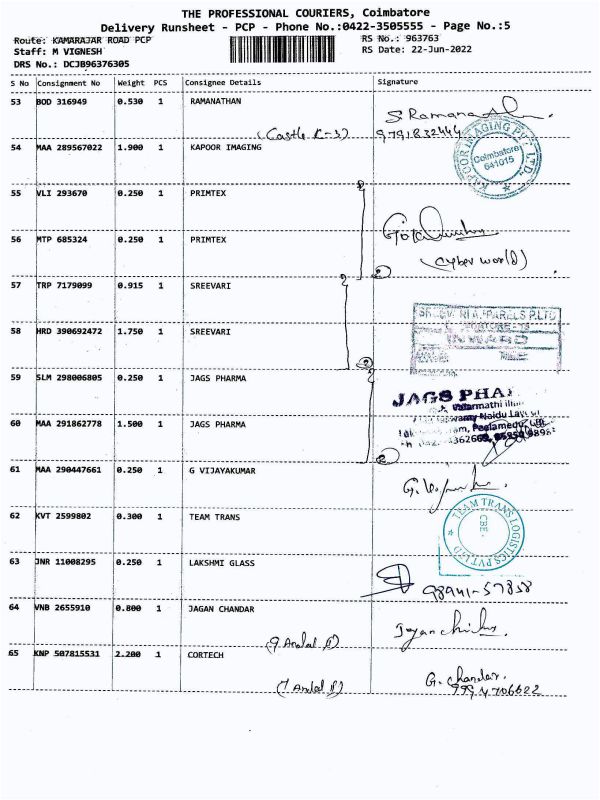 THE PROFESSIONAL COURIERS, Coimbatore
Delivery Runsheet - PCP - Phone No.:0422-3505555 - Page No.:5
Route: KAMARAJAR ROAD PCP RS No.: 963763
Staff: M VIGNESH RS Date: 22-Jun-2022
DRS No.: DCJB96376305
S No Consignment No Weight PCS Consignee Details Signature
53 BOD 316949 0.530 1 RAMANATHAN
(Castle K-3) 9791832444
54 MAA 289567022 1.900 1 KAPOOR IMAGING
KAPOOR IMAGING PVT LTD
Coimbatore
641015
55 VLI 293670 0.250 1 PRIMTEX
56 MTP 685324 0.250 1 PRIMTEX
(Cyber world)
2
57 TRP 7179099 0.915 1 SREEVARI
58 HRD 390692472 1.750 1 SREEVARI
APPARELS P.LTD
INWARD
2
59 SLM 298006805 0.250 1 JAGS PHARMA
60 MAA 291862778 1.500 1 JAGS PHARMA
JAGS PHA
Valarmathi
Naidu Lay
Peelamedu
2
61 MAA 290447661 0.250 1 G VIJAYAKUMAR
62 KVT 2599802 0.300 1 TEAM TRANS
TEAM TRANS LOGISTICS PVT LTD
CBE
63 JNR 11008295 0.250 1 LAKSHMI GLASS
98941-57838
64 VNB 2655910 0.800 1 JAGAN CHANDAR
65 KNP 507815531 2.200 1 CORTECH
G. Chandar.